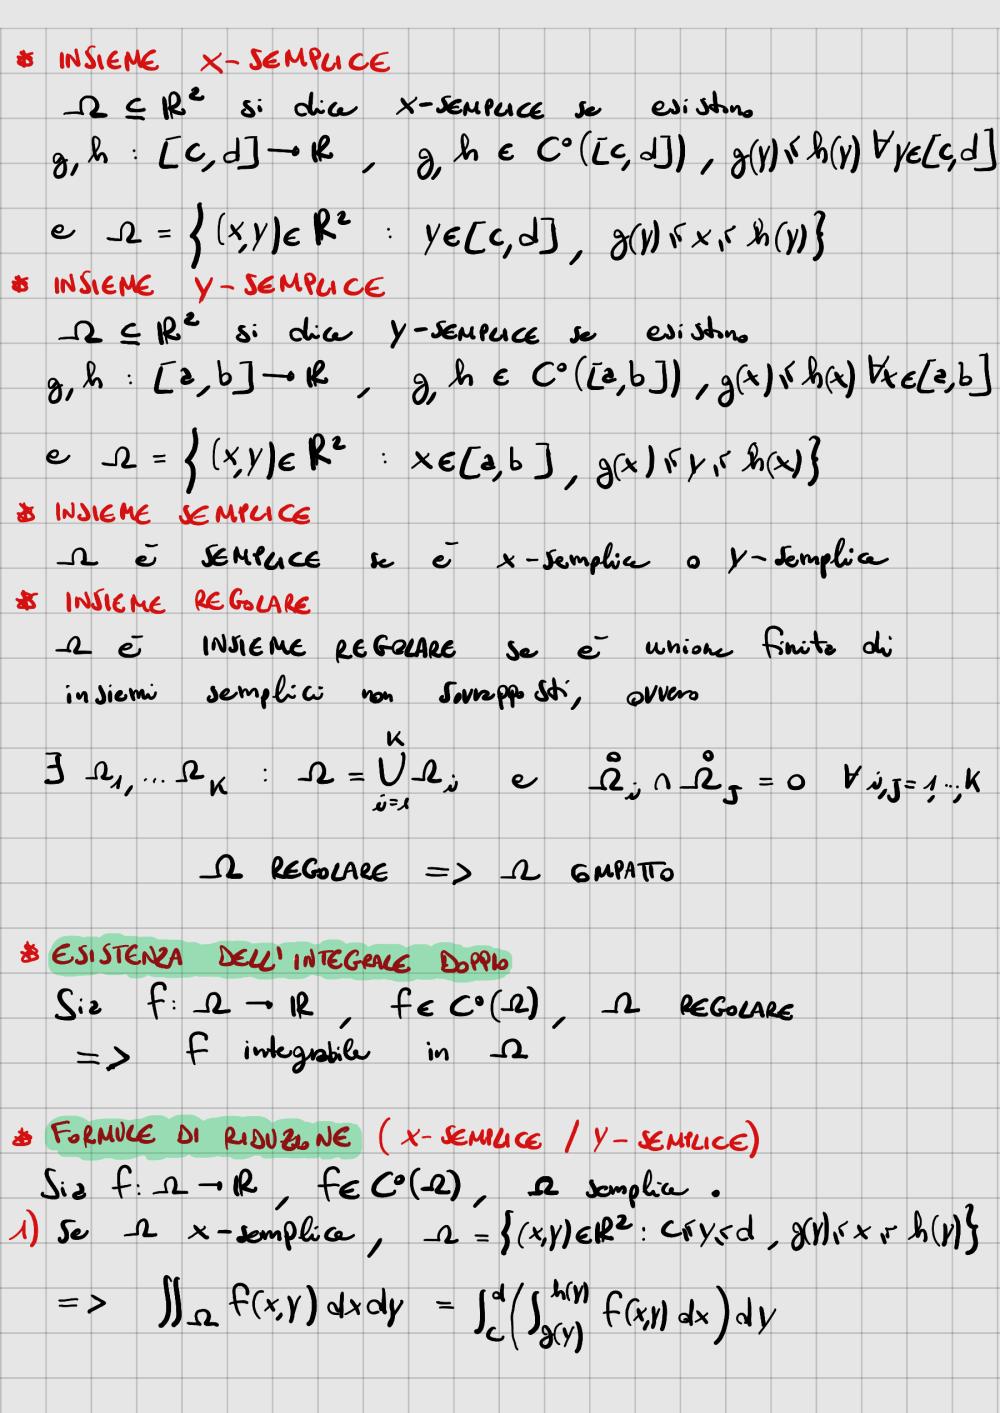 * INSIEME X-SEMPLICE
Ω ⊆ ℝ² si dice X-SEMPLICE se esistono
g, h : [c, d] → ℝ , g, h ∈ C°([c, d]) , g(y) ≤ h(y) ∀y∈[c,d]
e Ω = { (x,y) ∈ ℝ² : y∈[c,d] , g(y) ≤ x ≤ h(y)}
* INSIEME Y-SEMPLICE
Ω ⊆ ℝ² si dice Y-SEMPLICE se esistono
g, h : [a, b] → ℝ , g, h ∈ C°([a,b]) , g(x) ≤ h(x) ∀x∈[a,b]
e Ω = { (x,y) ∈ ℝ² : x∈[a,b] , g(x) ≤ y ≤ h(x)}
* INSIEME SEMPLICE
Ω è SEMPLICE se è x-semplice o y-semplice
* INSIEME REGOLARE
Ω è INSIEME REGOLARE se è unione finita di
insiemi semplici non sovrapposti, ovvero
∃ Ω₁, ... Ω_K : Ω = ⋃_{i=1}^{K} Ω_i e Ω̊_i ∩ Ω̊_J = 0 ∀ i,J = 1,..,K
Ω REGOLARE => Ω COMPATTO
* ESISTENZA DELL'INTEGRALE DOPPIO
Sia f: Ω → ℝ , f ∈ C°(Ω) , Ω REGOLARE
=> f integrabile in Ω
* FORMULE DI RIDUZIONE (X-SEMPLICE / Y-SEMPLICE)
Sia f: Ω → ℝ , f ∈ C°(Ω) , Ω semplice.
1) Se Ω x-semplice , Ω = {(x,y) ∈ ℝ² : c ≤ y ≤ d , g(y) ≤ x ≤ h(y)}
=> ∬_Ω f(x,y) dx dy = ∫_c^d ( ∫_{g(y)}^{h(y)} f(x,y) dx ) dy